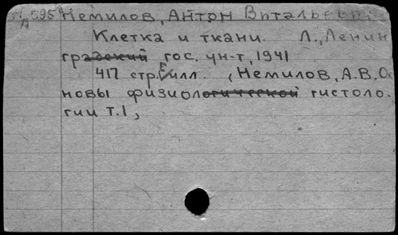 595 Немилов, Антон Витальевич
Клетка и ткани. Л., Ленин
градский гос. ун-т, 1941
417 стр. с илл. (Немилов, А.В. Ос
новы физиологической гистоло-
гии т. 1)